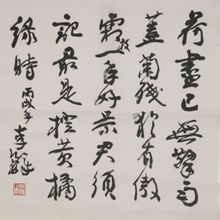 荷盡已無擎雨
蓋菊殘猶有傲
霜枝一年好景君須
記最是橙黃橘
綠時 丙戌
李